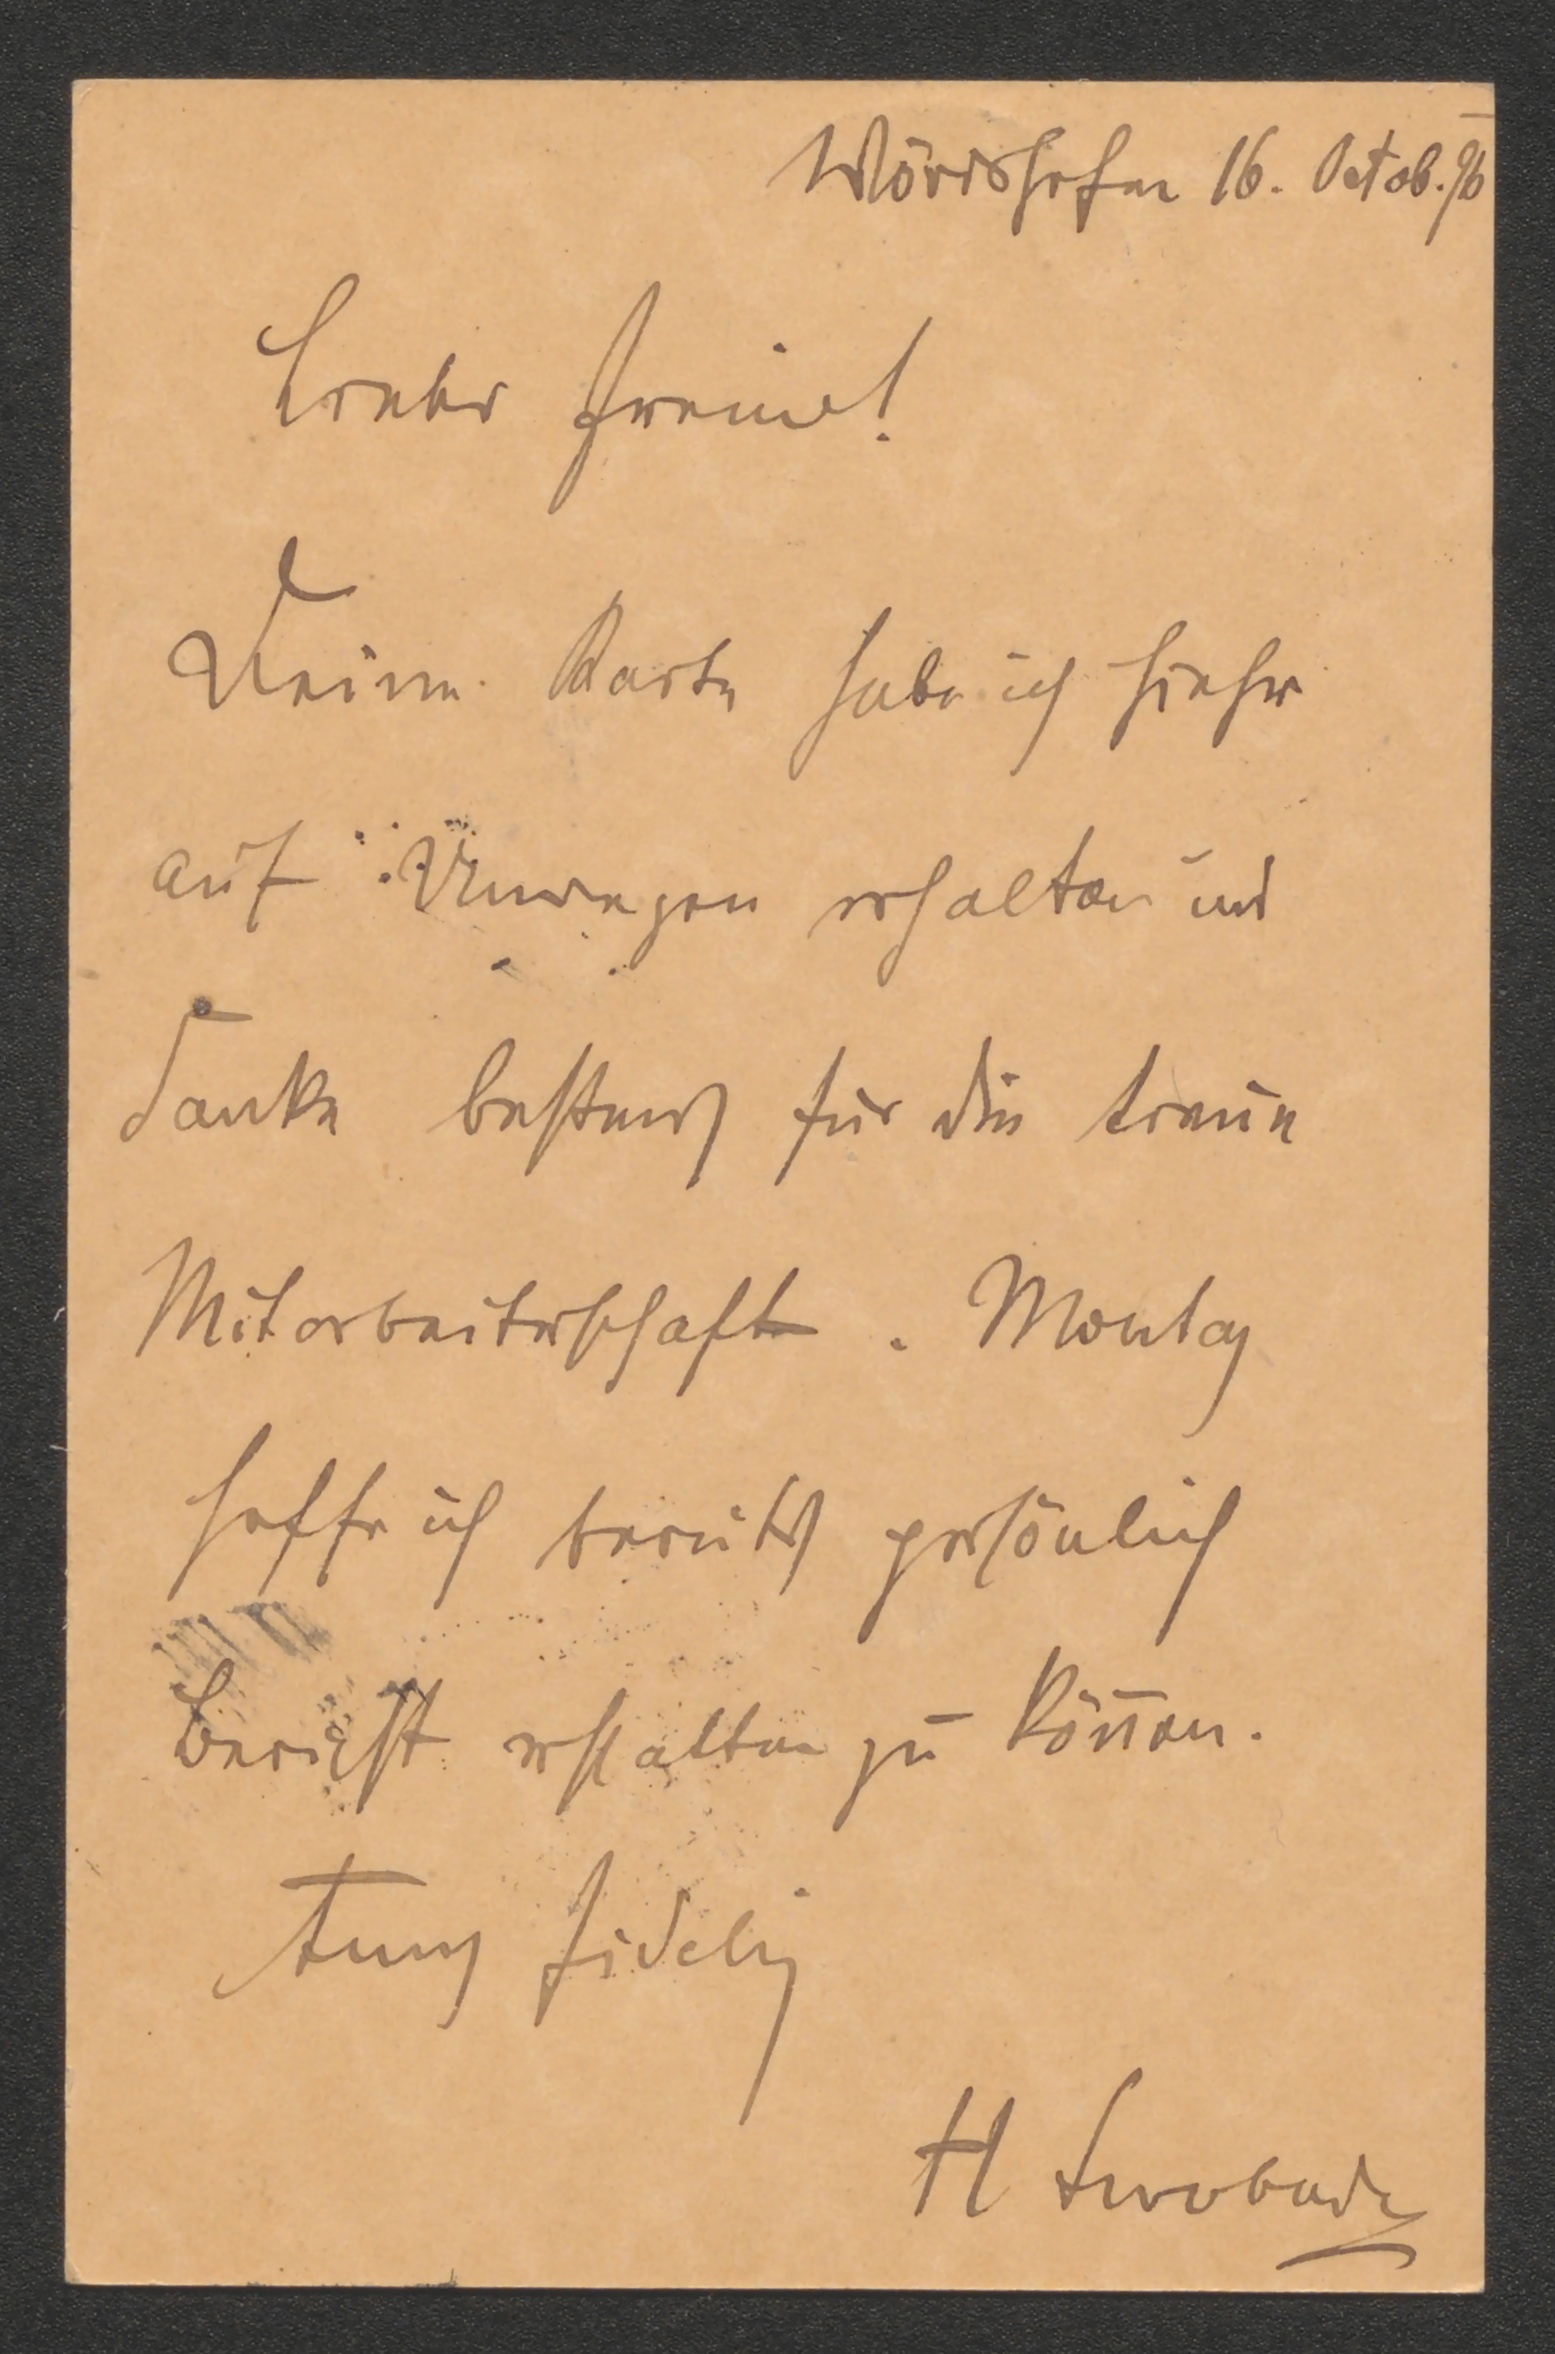 Wörishofen 16. Octob. 96
Lieber Freund!
Deine Karte habe ich hieher
auf Umwegen erhalten und
danke bestens für die treue
Mitarbeiterschaft. Montag
hoffe ich bereits persönlich
Bericht erhalten zu können.
fidelis
H Swoboda